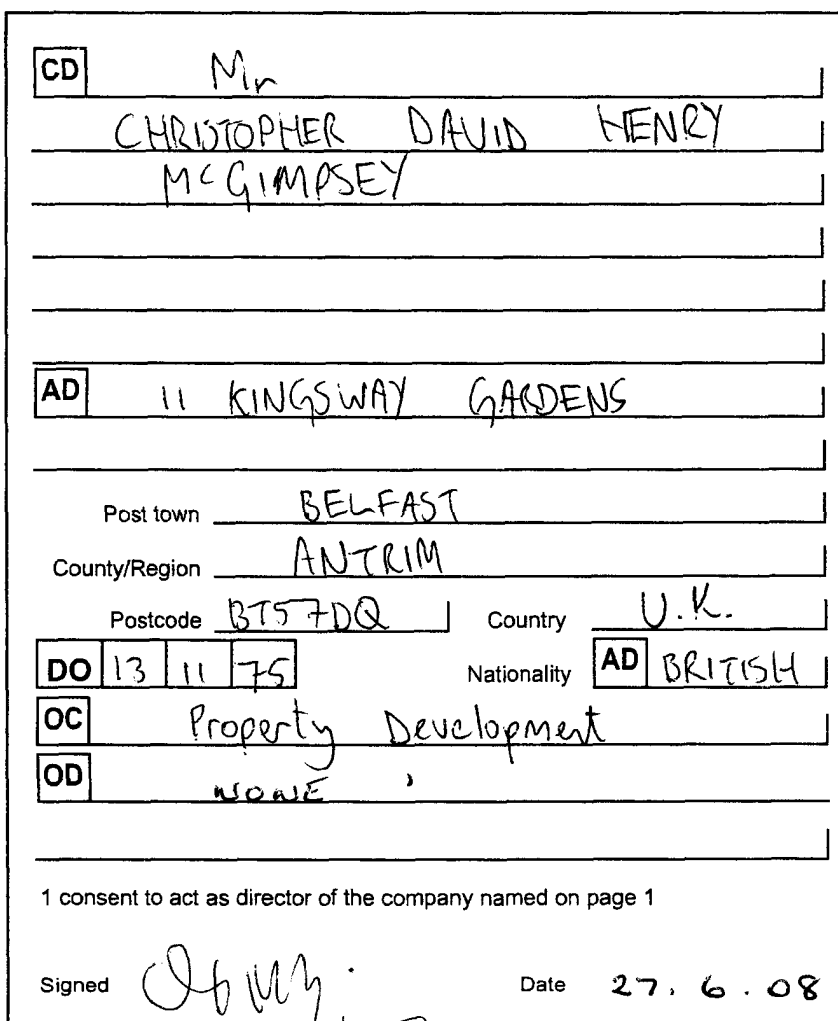 CD Mr
CHRISTOPHER DAVID HENRY
McGIMPSEY
AD 11 KINGSWAY GARDENS
Post town BELFAST
County/Region ANTRIM
Postcode BT57DQ Country U.K.
DO 13 11 75 Nationality AD BRITISH
OC Property Development
OD NONE
1 consent to act as director of the company named on page 1
Signed Date 27.6.08